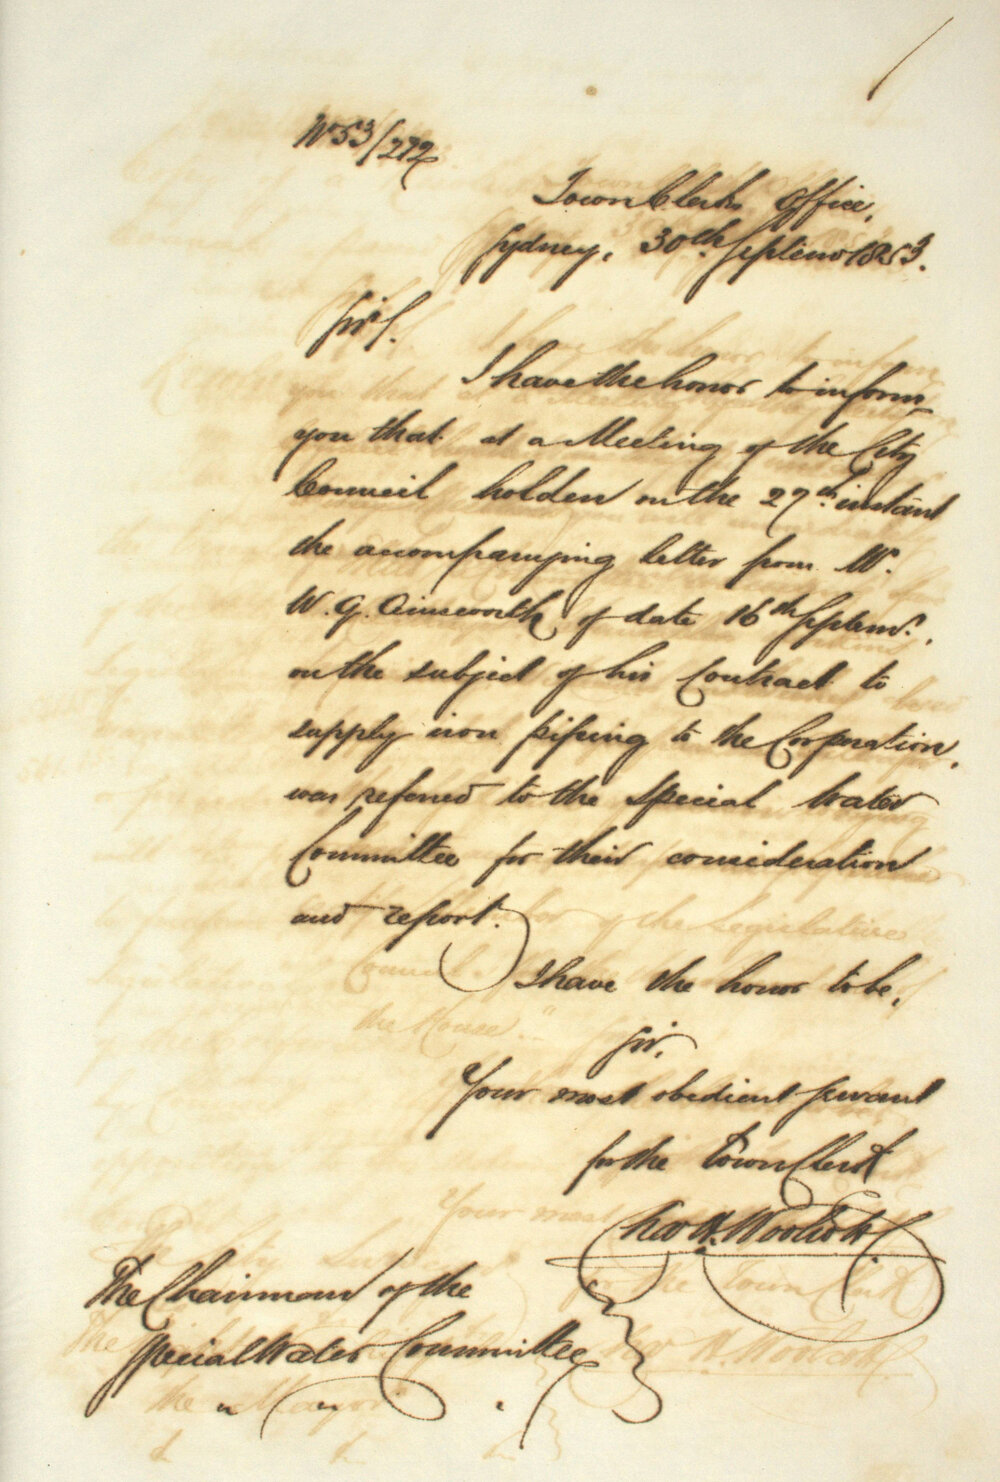 No 53/272
Town Clerks Office,
Sydney, 30th Septemr 1853.
Sir,
I have the honor to inform
you that at a Meeting of the City
Council holden on the 27th instant
the accompanying letter from Mr.
W. G. Ainsworth of date 16th Septemr.,
on the subject of his Contract to
supply iron piping to the Corporation,
was referred to the Special Water
Committee for their consideration
and report.
I have the honor to be,
Sir,
Your most obedient servant
for the Town Clerk
Geo H. Woolcott
The Chairman of the
Special Water Committee